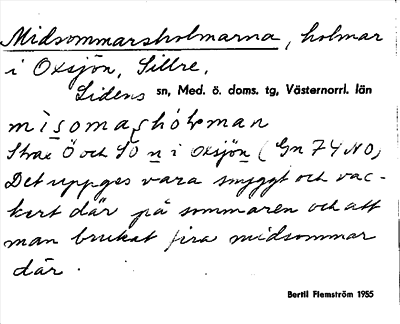 Midsommarsholmarna, holmar
i Oxsjön, Sillre,
Lidens sn, Med. ö. doms. tg, Västernorrl. län
misomasholman
Strax Ö och SÖ n i Oxsjön (Gn 74 NO)
Det uppges vara snyggt och vac-
kert där på sommaren och att
man brukat fira midsommar
där.
Bertil Flemström 1955